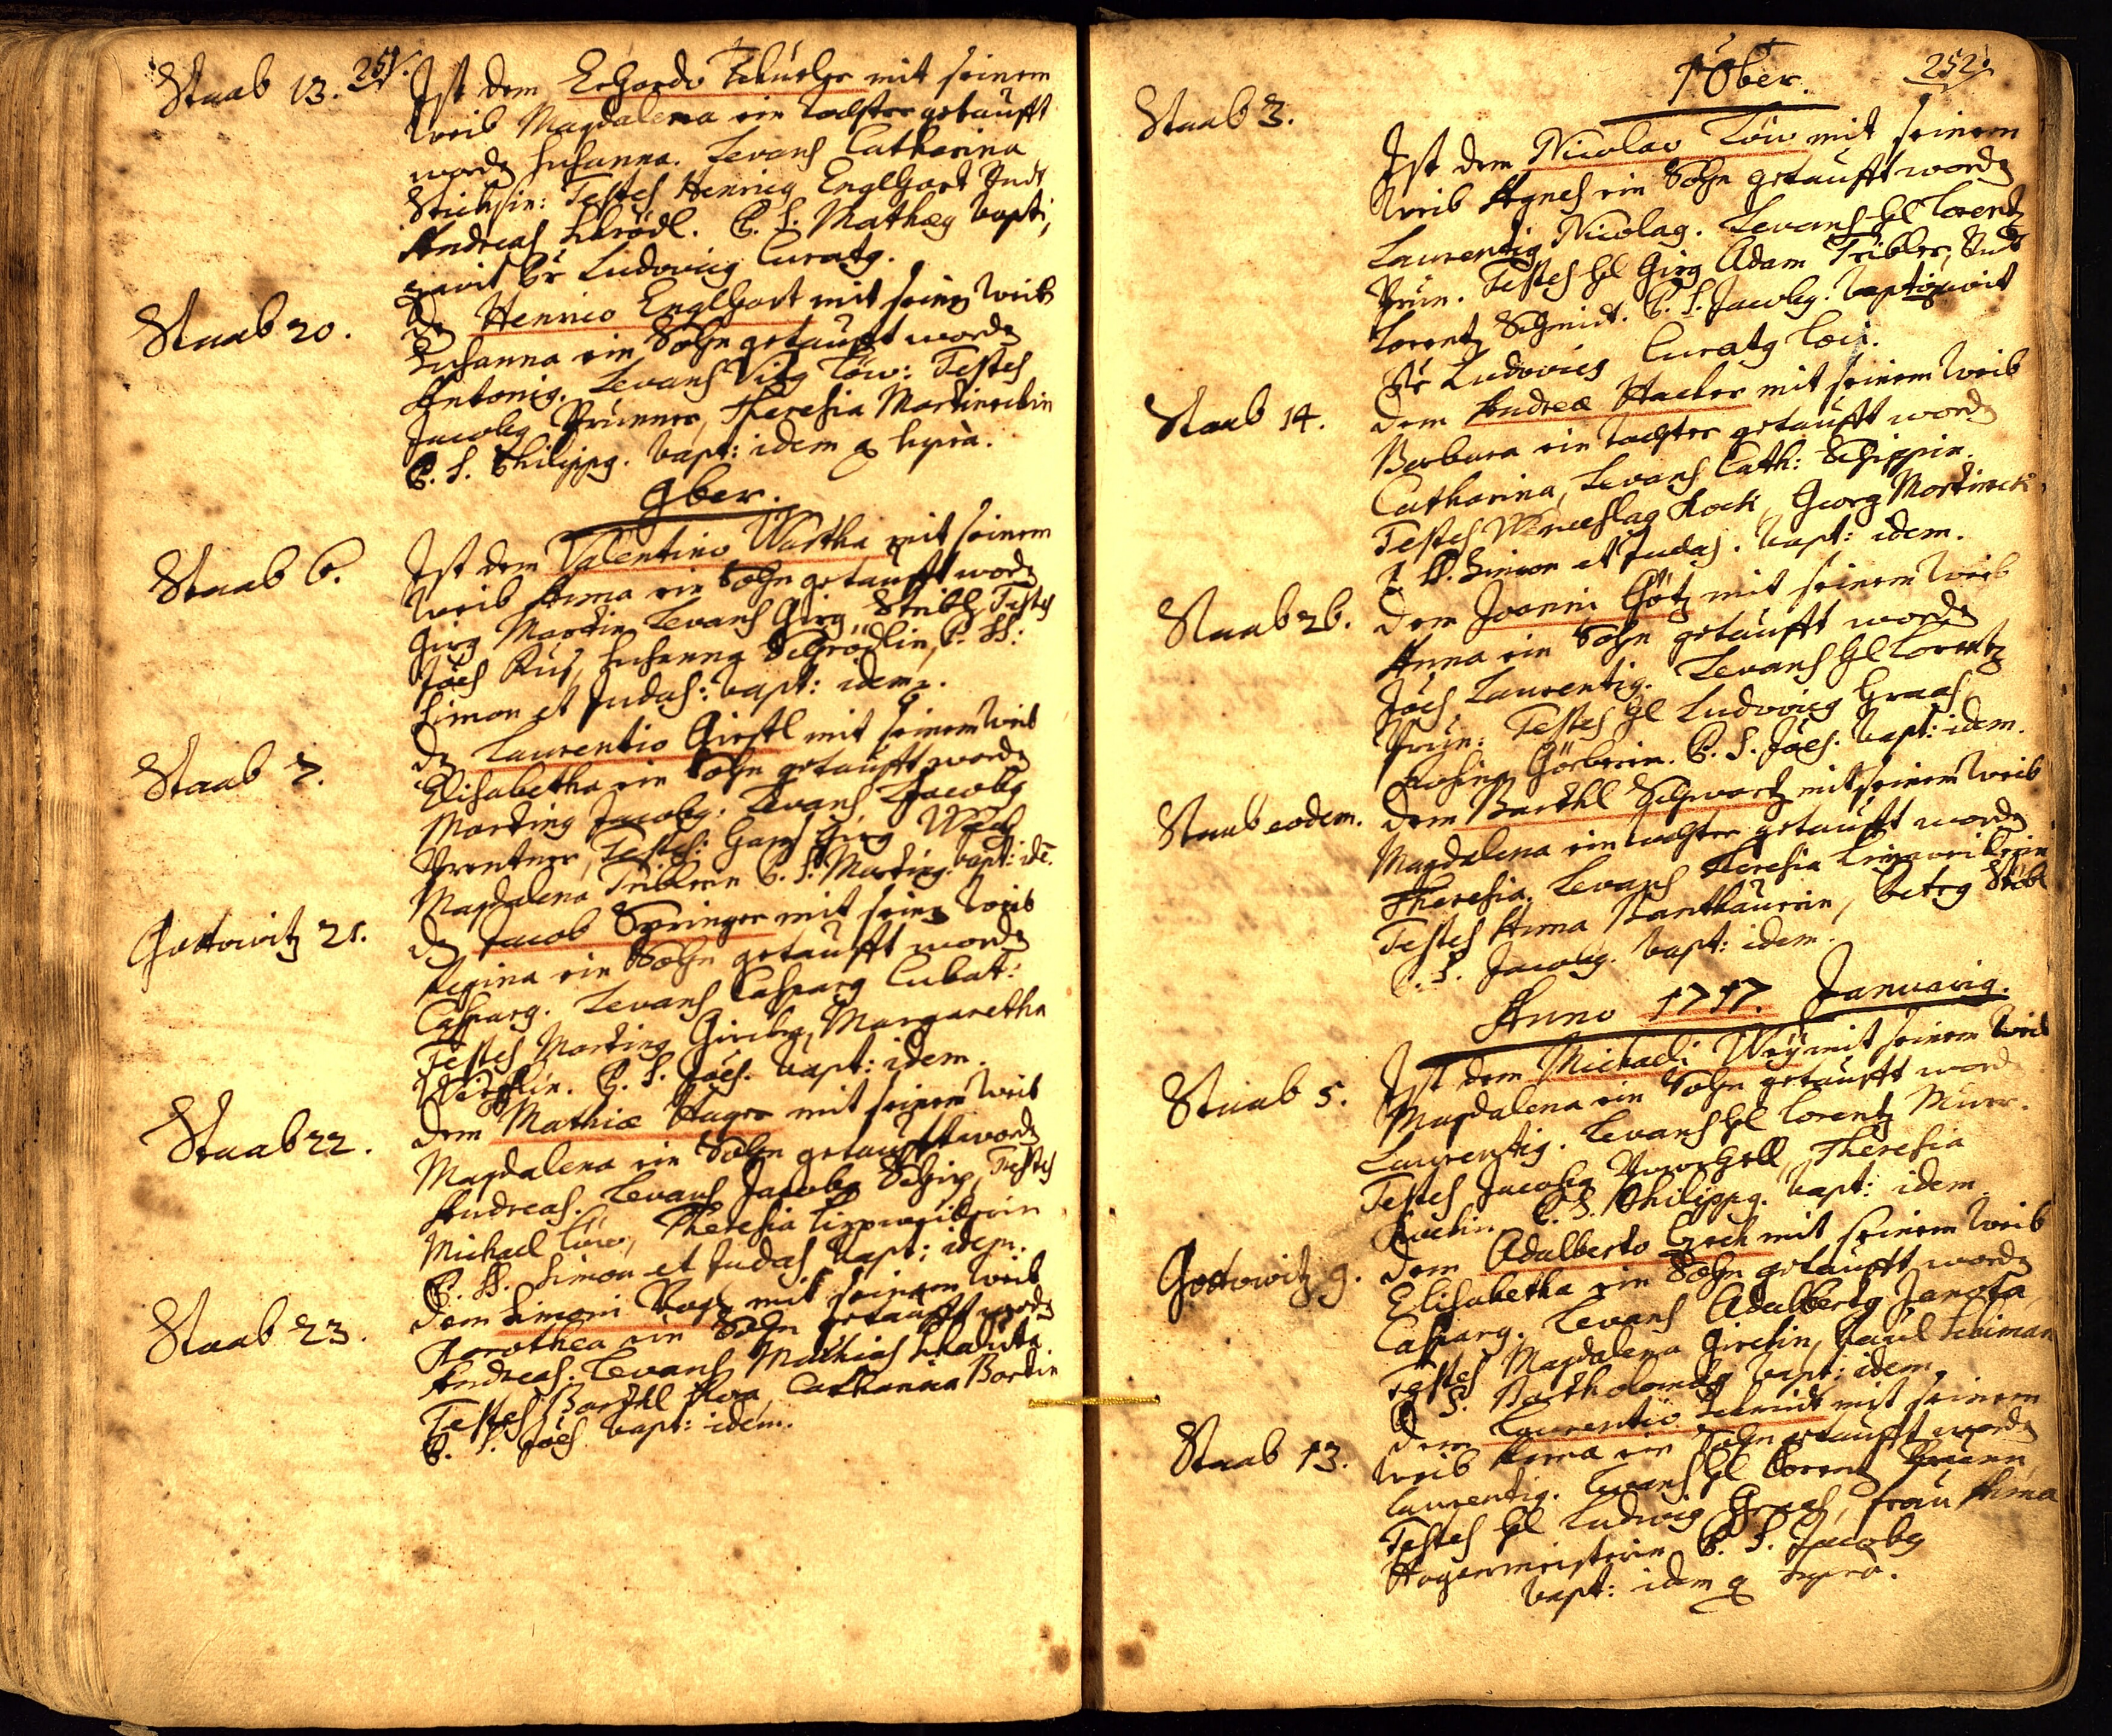 251.
Staab 13. Ist dem Erhardo Schueler mit seinem
weib Magdalena ein tochter getaufft
wordn Susanna. Levans Catharina
Testes Henricg Englhart Undt
Andreas Schrödl. P. S. Mathæg bapti,
zavit Pr Ludovicg Curatg.
Staab 20. dn Henrico Englhart mit seinn weib
Susanna ein Sohn getaufft wordn
Antonig. Levans Vitg Löw: Testes
Jacobg Prunner, Theresia Martinechin
P. S. Philippg. bapt: idem q supra.
9ber.
Staab 6. Ist dem Valentino Wastha mit seinem
weib Anna ein Sohn getaufft wordn
Girg Martin Levans Girg Steibl, Testes
Joes Kus, Susanna Schrödlin, P. SS:
Simon et Judas: bapt: idem.
Staab 7. dn Laurentio Girstl mit seinem weib
Elisabetha ein Sohn getaufft wordn
Marting Jacobg: Levans Jacobg
Prentner, Testes: Hans Girg
Magdalena Triblerin P. S. Marting. bapt: ide.
Gottowitz 21. dn Jacob Springer mit seinn weib
Regina ein Sohn getaufft wordn
Casparg. Levans Casparg Cubat:
Testes Marting Girchg, Margaretha
P. S. Joes. bapt: idem.
Staab 22. dem Mathiæ Hager mit seinem weib
Magdalena ein Sohn getaufft wordn
Andreas. Levans Jacobg Schip, Testes
Michael Löw, Theresia
P. SS. Simon et Judas bapt: idem.
Staab 23. dem Simoni mit seinem weib
Dorothea ein Sohn getaufft wordn
Andreas. Levans Mathias
Testes Barthl Catharina Bartin
P. S. Joes bapt: idem.
252.
Xber.
Staab 3. Ist dem Nicolao Löw mit seinem
weib Agnes ein Sohn getaufft wordn
Laurentig Nicolag. Levans Hl Lorentz
Prün. Testes Hl Girg Adam Tribler, Undt
Lorentz Schmidt. P. S. Jacobg. baptizavit
Pr Ludovicg Curatg loci.
Staab 14. dem Andreæ Hacker mit seinem weib
Barbara ein tochter getaufft wordn
Catharina, Levans Cath: Schippin.
Testes Wenceslag Kock, Georg Martineck
P SS. Simon et Judas. bapt: idem.
Staab 26. dem Joanni Götz mit seinem weib
Anna ein Sohn getaufft wordn
Joes Laurentig. Levans Hl Lorentz
Prün: Testes Hl Ludovicg Graas
P. S. Joes. bapt: idem.
Staab eodem. dem Barthl Schwartz mit seinem weib
Magdalena ein tochter getaufft wordn
Theresia. Levans Theresia
Testes Anna Petrg Steibl
P. S. Jacobg. bapt: idem.
Anno 1717. Januarig.
Staab 5. Ist dem Michaeli Weÿ mit seinem weib
Magdalena ein Sohn getaufft word
Laurentig. Levans Hl Lorentz
Testes Jacobg Theresia
P. S. Philippg. bapt: idem
Gottowitz 9. dem Adalberto Czech mit seinem weib
Elisabetha ein Sohn getaufft wordn
Casparg. Levans Adalbertg Janota,
Testes Magdalena Girchin, Paul Schiman
P S. Bartholomeg bapt: idem.
Staab 13. dem Laurentio Schmidt mit seinem
weib Anna ein Sohn getaufft wordn
Laurentig. Levans Hl Lorentz Pruenn,
Testes Hl Ludwig Graas, frau Anna
Hagenmeisterin P. S. Jacobg
bapt: idem q supra.